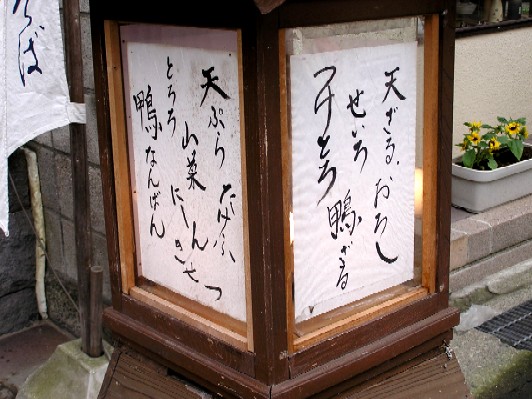 そば
天ざる おろし
せいろ 鴨ざる
つけとろ
天ぷら たぬき
山菜 にしん
とろろ
鴨なんばん